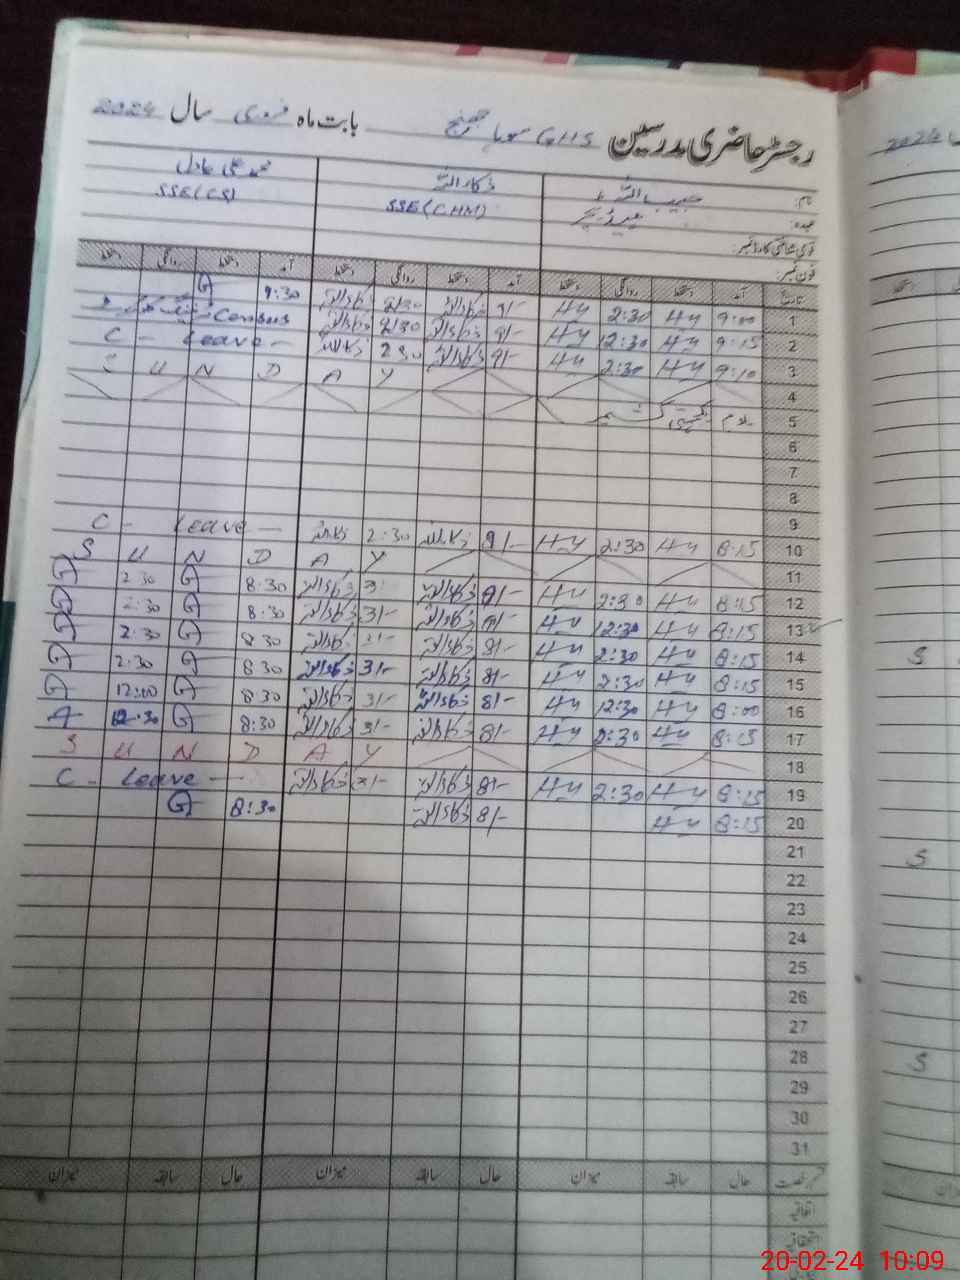 رجسٹر حاضری مدرسین GHS سوہا جھنج بابت ماہ فروری سال 2024
نام: حبیب اللہ ذکاء اللہ محمد علی عادل
عہدہ: ہیڈ ٹیچر SSE (CHM) SSE (CS)
قومی شناختی کارڈ نمبر:
فون نمبر:
تاریخ آمد دستخط روانگی دستخط آمد دستخط روانگی دستخط آمد دستخط روانگی دستخط
1 9:00 2:30 9/- ذکاء اللہ 2/30 ذکاء اللہ 9:30
2 9:15 12:30 9/- ذکاء اللہ ذکاء اللہ Census
3 9:10 2:30 9/- ذکاء اللہ 2:30 ذکاء اللہ C - Leave -
4 S U N D A Y
5 یوم یکجہتی کشمیر
6
7
8
9
10 8:15 2:30 8/- ذکاء اللہ 2:30 ذکاء اللہ C - Leave -
11 S U N D A Y
12 8:15 2:30 8/- ذکاء اللہ ذکاء اللہ 8:30 2:30
13 8:15 12:30 8/- ذکاء اللہ 3/- ذکاء اللہ 8:30 2:30
14 8:15 2:30 8/- ذکاء اللہ 3/- ذکاء اللہ 8:30 2:30
15 8:15 2:30 8/- ذکاء اللہ 3/- ذکاء اللہ 8:30 2:30
16 8:00 12:30 8/- ذکاء اللہ 3/- ذکاء اللہ 8:30 12:00
17 8:15 2:30 8/- ذکاء اللہ 3/- ذکاء اللہ 8:30 12:30
18 S U N D A Y
19 8:15 2:30 8/- ذکاء اللہ 3/- ذکاء اللہ C - Leave -
20 8:15 8/- ذکاء اللہ 8:30
21
22
23
24
25
26
27
28
29
30
31
حال سابقہ میزان حال سابقہ میزان حال سابقہ میزان
اتفاقیہ
استحقاقیہ
2024
S
S
S
20-02-24 10:09